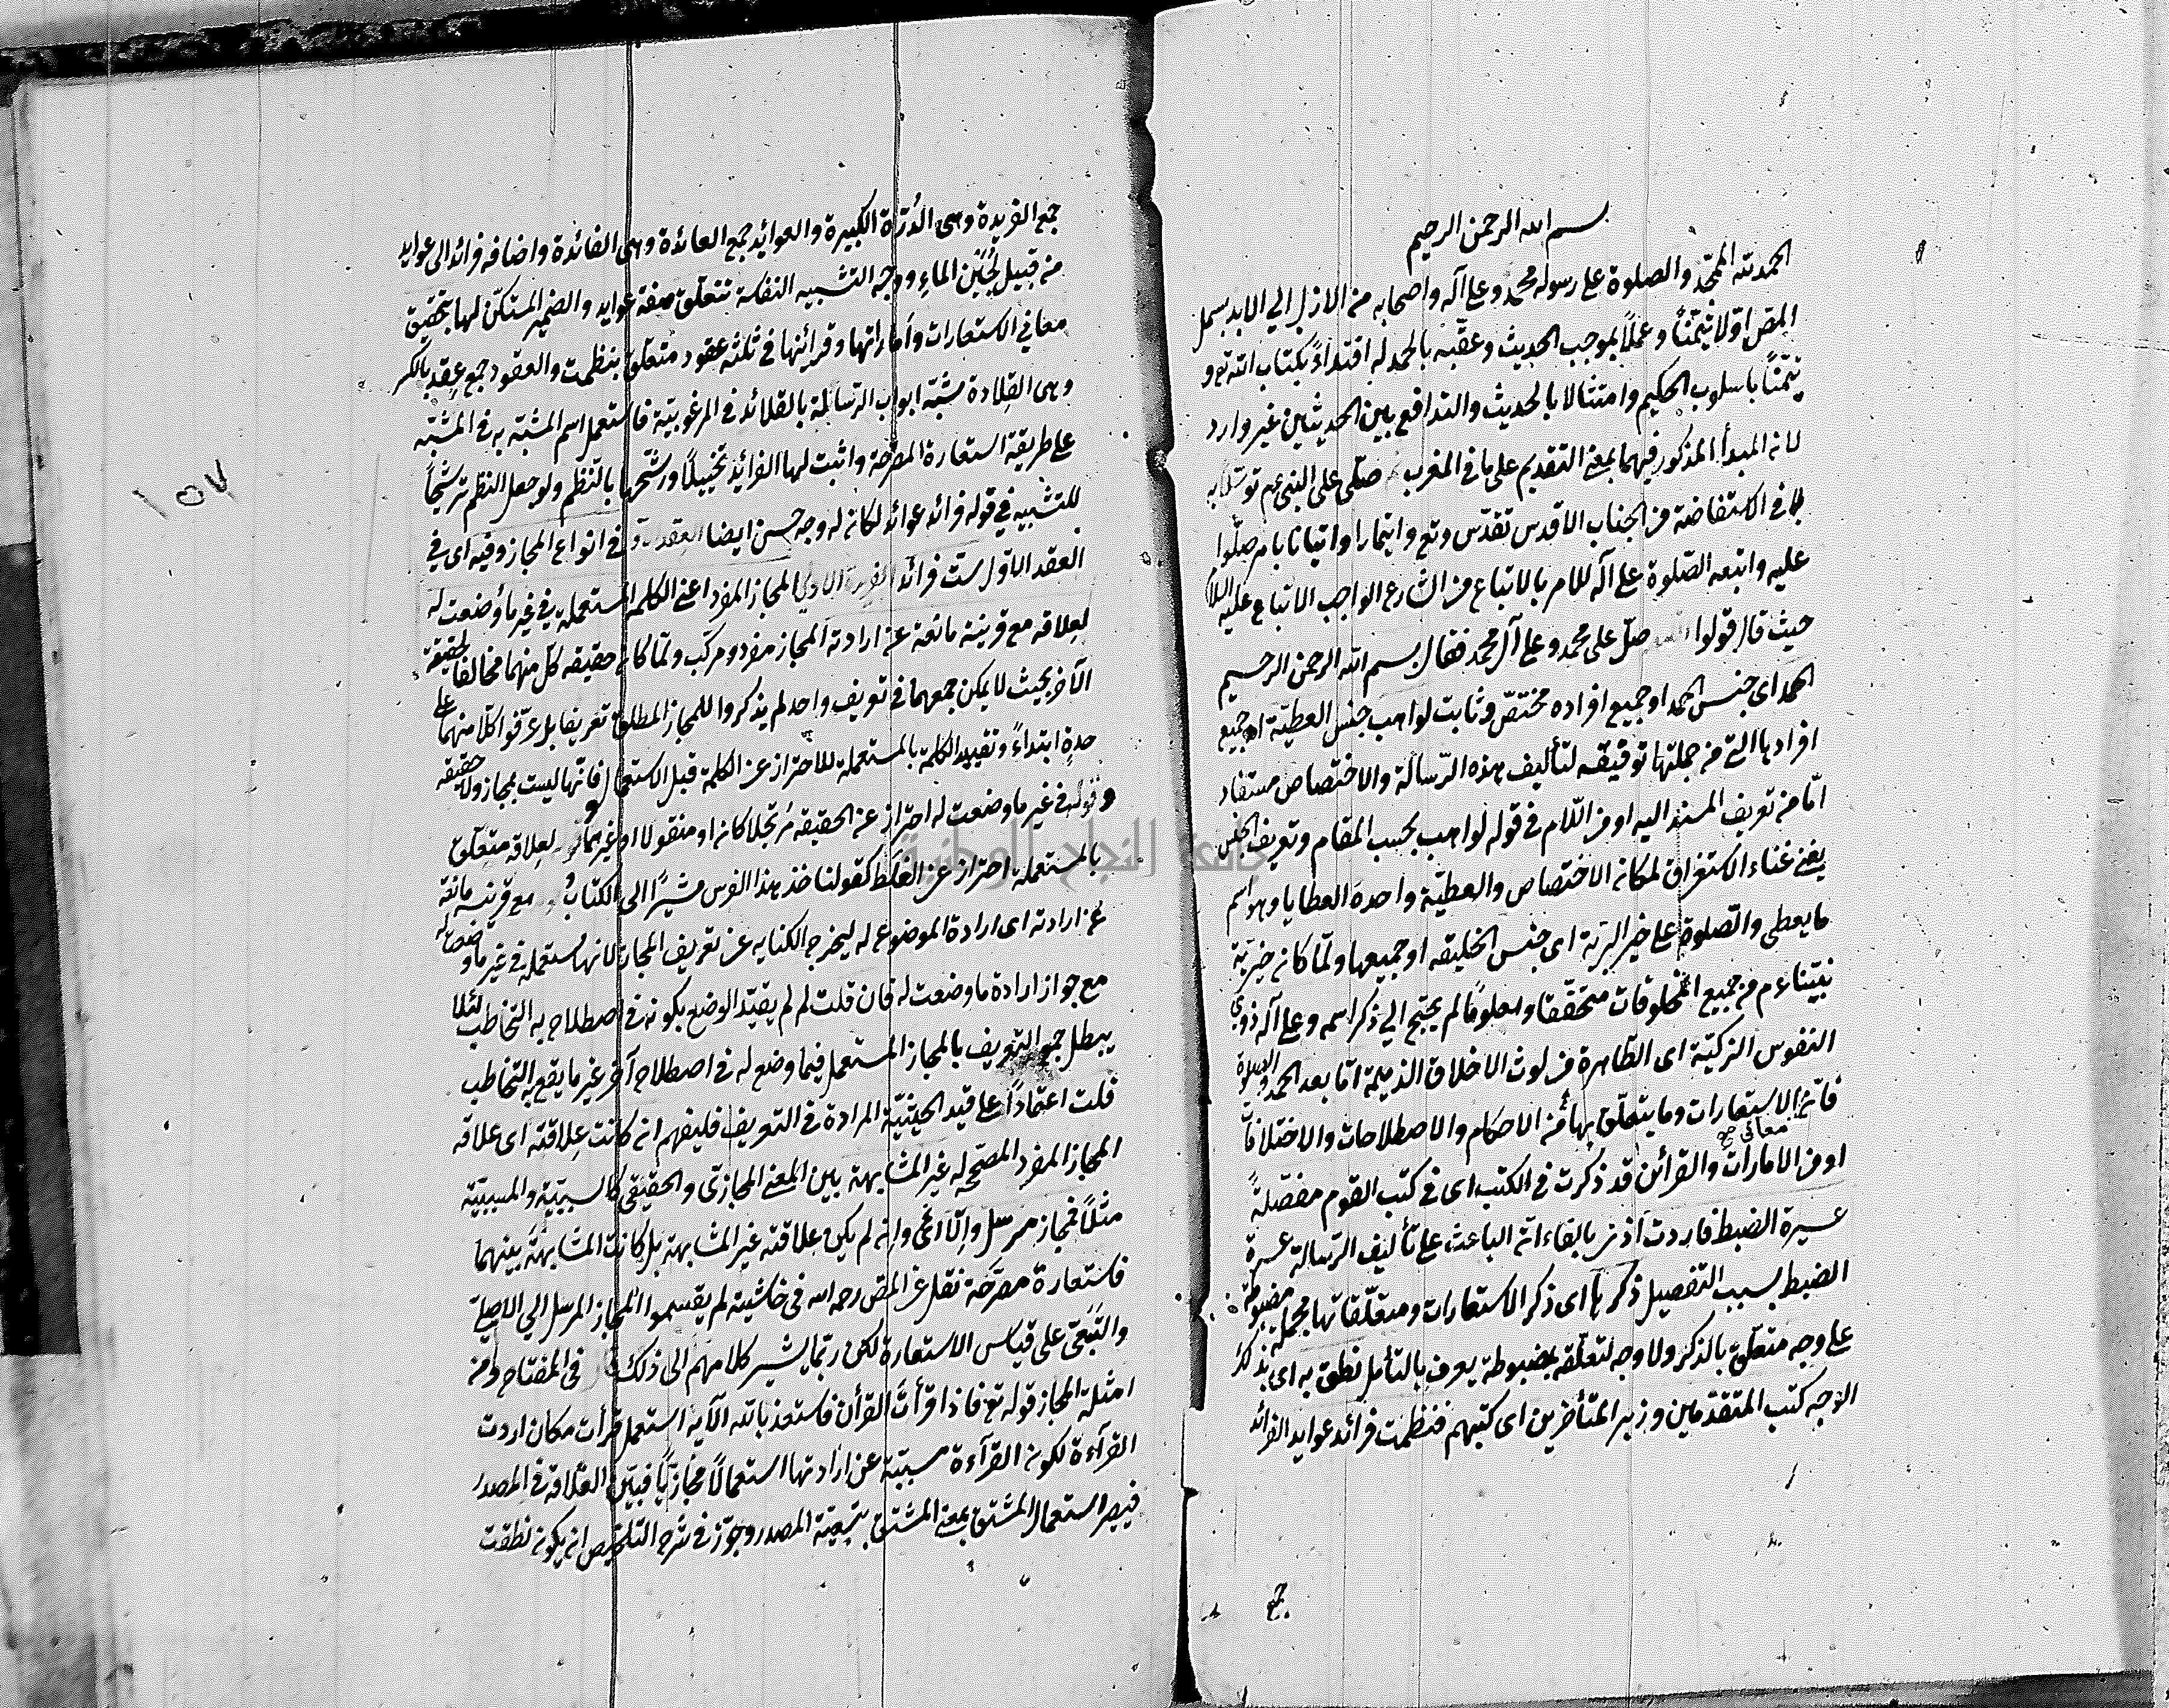 بسم الله الرحمن الرحيم
الحمد لله الممجّد والصلوة على رسوله محمد وعلى آله واصحابه من الازل الي الابد بسمل
المص اوّلا تيمّنًا وعملًا بموجب الحديث وعقّبه بالحمد له اقتداءً بكتاب الله تع و
تيمّنًا باسلوب الحكيم وامتثالا بالحديث والتدافع بين الحديثين غير وارد
لانه المبدأ المذكور فيهما بمعنى التقديم على ما في المغرب صلّى على النبى عم توسّلا به
في الاستفاضة من الجناب الاقدس تقدّس وتع وايتمارا واتيانا بامر صلّوا
عليه واتبعه الصّلوة على آله للامر بالاتباع من الشارع الواجب الاتباع عليه السلام
حيث قال قولوا صلّ على محمد وعلى آل محمد فقال بسم الله الرحمن الرحيم
الحمد اى جنس الحمد او جميع افراده مختصّ وثابت لواهب جنس العطيّة او جميع
افرادها التى من جملتها توفيقه لتأليف هذه الرّسالة والاختصاص مستفاد
امّا من تعريف المسند اليه او من اللّام في قوله لواهب بحسب المقام وتعريف الجنس
يغنى غناء الاستغراق لمكان الاختصاص والعطيّة واحدة العطايا وهو اسم
ما يعطى والصّلوة على خير البريّة اى جنس الخليقه او جميعها ولمّا كان خيريّة
نبيّنا عم من جميع المخلوقات متحقّقا ومعلومًا لم يحتج الي ذكر اسمه وعلى آله ذوي
النفوس الزكيّة اى الطّاهرة من لوث الاخلاق الذميمة امّا بعد الحمد والصلوة
فانّ معانى الاستعارات وما يتعلّق بها من الاحكام والاصطلاحات والاختلافات
او من الامارات والقرائن قد ذكرت في الكتب اى فى كتب القوم مفصّلةً
عسيرة الضبط فاردت اذن بالفاء انّ الباعث على تأليف الرّسالة عسرة
الضبط بسبب التفصيل ذكرها اى ذكر الاستعارات ومتعلّقاتها مجملة مضبوطة
على وجه متعلّق بالذكر ولا وجه لتعلّقه بمضبوطة يعرف بالتأمل نطق به اى بذلك
الوجه كتب المتقدمين وزبر المتأخرين اى كتبهم فنظمت فرائد عوايد الفرائد
جمع
جمع الفريدة وهى الدُرّة الكبيرة والعوائد جمع العائدة وهى الفائدة واضافه فرائد الى عوايد
من قبيل لُجَيْن الماء ووجه التشبيه النفاسة تتعلّق صفة عوايد والضمير المستكنّ لها بتحقيق
معاني الاستعارات وأماراتها وقرائنها في ثلثه عقود متعلّق بنظمت والعقود جمع عِقد بالكسر
وهى القِلادة شبّه ابواب الرّسالة بالقلائد في المرغوبيّة فاستعمل اسم المشبّه به في المشبّه
على طريقة استعارة المصرّحة واثبت لها الفرائد تخييلًا ورشّحها بالنّظم ولو جعل النظم ترشيحًا
للتشبيه في قوله فرائد عوائد لكان له وجه حسن ايضا العقد فى انواع المجاز وفيه اى في
العقد الاوّل ست فرائد المجاز المفرد اعنى الكلمه المستعمله في غير ما وُضعت له
لعِلاقه مع قرينة مانعة عن ارادته المجاز مفرد ومركّب ولمّا كان حقيقه كلّ منهما مخالفا لحقيقة
الآخر بحيث لا يمكن جمعهما في تعريف واحد لم يذكروا للمجاز المطلق تعريفا بل عرّفوا كلّا منهما على
حدةٍ ابتداءً وتقييد الكلمة بالمستعملة للاحتراز عن الكلمة قبل الاستعمال فانّها ليست بمجاز ولا حقيقة
وقوله في غير ما وضعت له احتراز عن الحقيقه مُرتَجلا كان او منقولا او غيرهما لعِلاقه متعلّق
بالمستعملة احتراز عن الغلَط كقولنا خذ هذا الفرس مشيرًا الى الكتاب مع قرينه مانعة
عن ارادته اى ارادة الموضوع له ليخرج الكنايه عن تعريف المجاز لانها مستعمله في غير ما وضعت له
مع جواز ارادة ما وضعت له فان قلت لم لم يقيّد الوضع بكونه في اصطلاح به التخاطب لئلا
يبطل جمع التعريف بالمجاز المستعمل فيما وضع له في اصطلاح آخر غير ما يقع به التخاطب
قلت اعتمادًا على قيد الحيثيّة المرادة في التعريف فليفهم ان كانت عِلاقته اى علاقه
المجاز المفرد المصحّحه له غير المشابهة بين المعنى المجازى والحقيقى كالسببيّة والمسببيّة
مثلًا فمجاز مرسل والّا اى وان لم يكن عِلاقته غير المشابهة بل كانت المشابهة بينهما
فاستعارة مصرّحة نقل عن المص رحمه الله فى حاشيته لم يقسموا المجاز المرسل الي الاصليّ
والتَبَعيّ على قياس الاستعارة لكن ربّما يشير كلامهم الى ذلك فى المفتاح ومن
امثله المجاز قوله تع فاذا قرأتَ القرآن فاستعذ بالله الآيه استعمل قرأت مكان اردت
القرآءة لكون القرآءة مسببّة عن ارادتها استعمالًا مجازيّا فبيّن العلاقة في المصدر
فيصير استعمال المشتق بمعنى المشتق بتبعيّة المصدر وجوّز في شرح التلخيص ان يكون نطقت
١٥٧
جامعة النجاح الوطنية